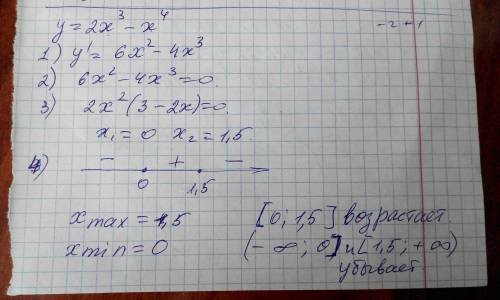 y = 2x³ - x⁴
-2+1
1) y' = 6x² - 4x³
2) 6x² - 4x³ = 0.
3) 2x²(3 - 2x) = 0.
x₁ = 0 x₂ = 1,5.
4) - + -
0 1,5
x max = 1,5 [0; 1,5] возрастает.
x min = 0 (-∞; 0] и [1,5; +∞)
убывает